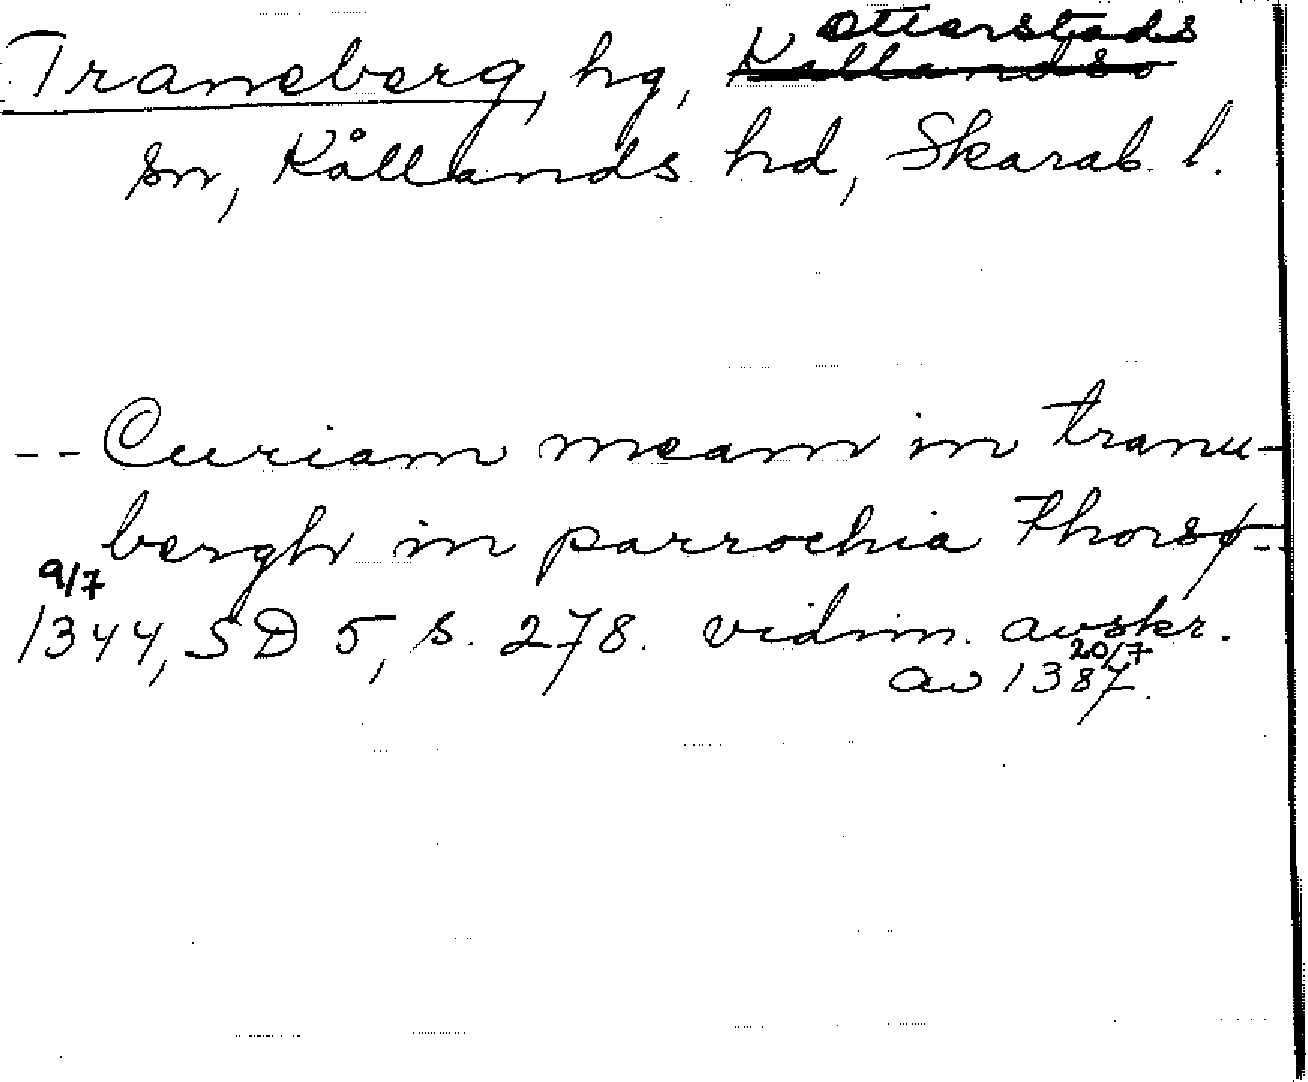 Otterstads
Traneberg, hg, Kållandsö
sn, Kållands hd, Skarab. l.
-- Curiam meam in tranu-
bergh in parrochia Thorsø --
9/7
1344, SD 5, s. 278. vidim. avskr.
20/7
av 1387.